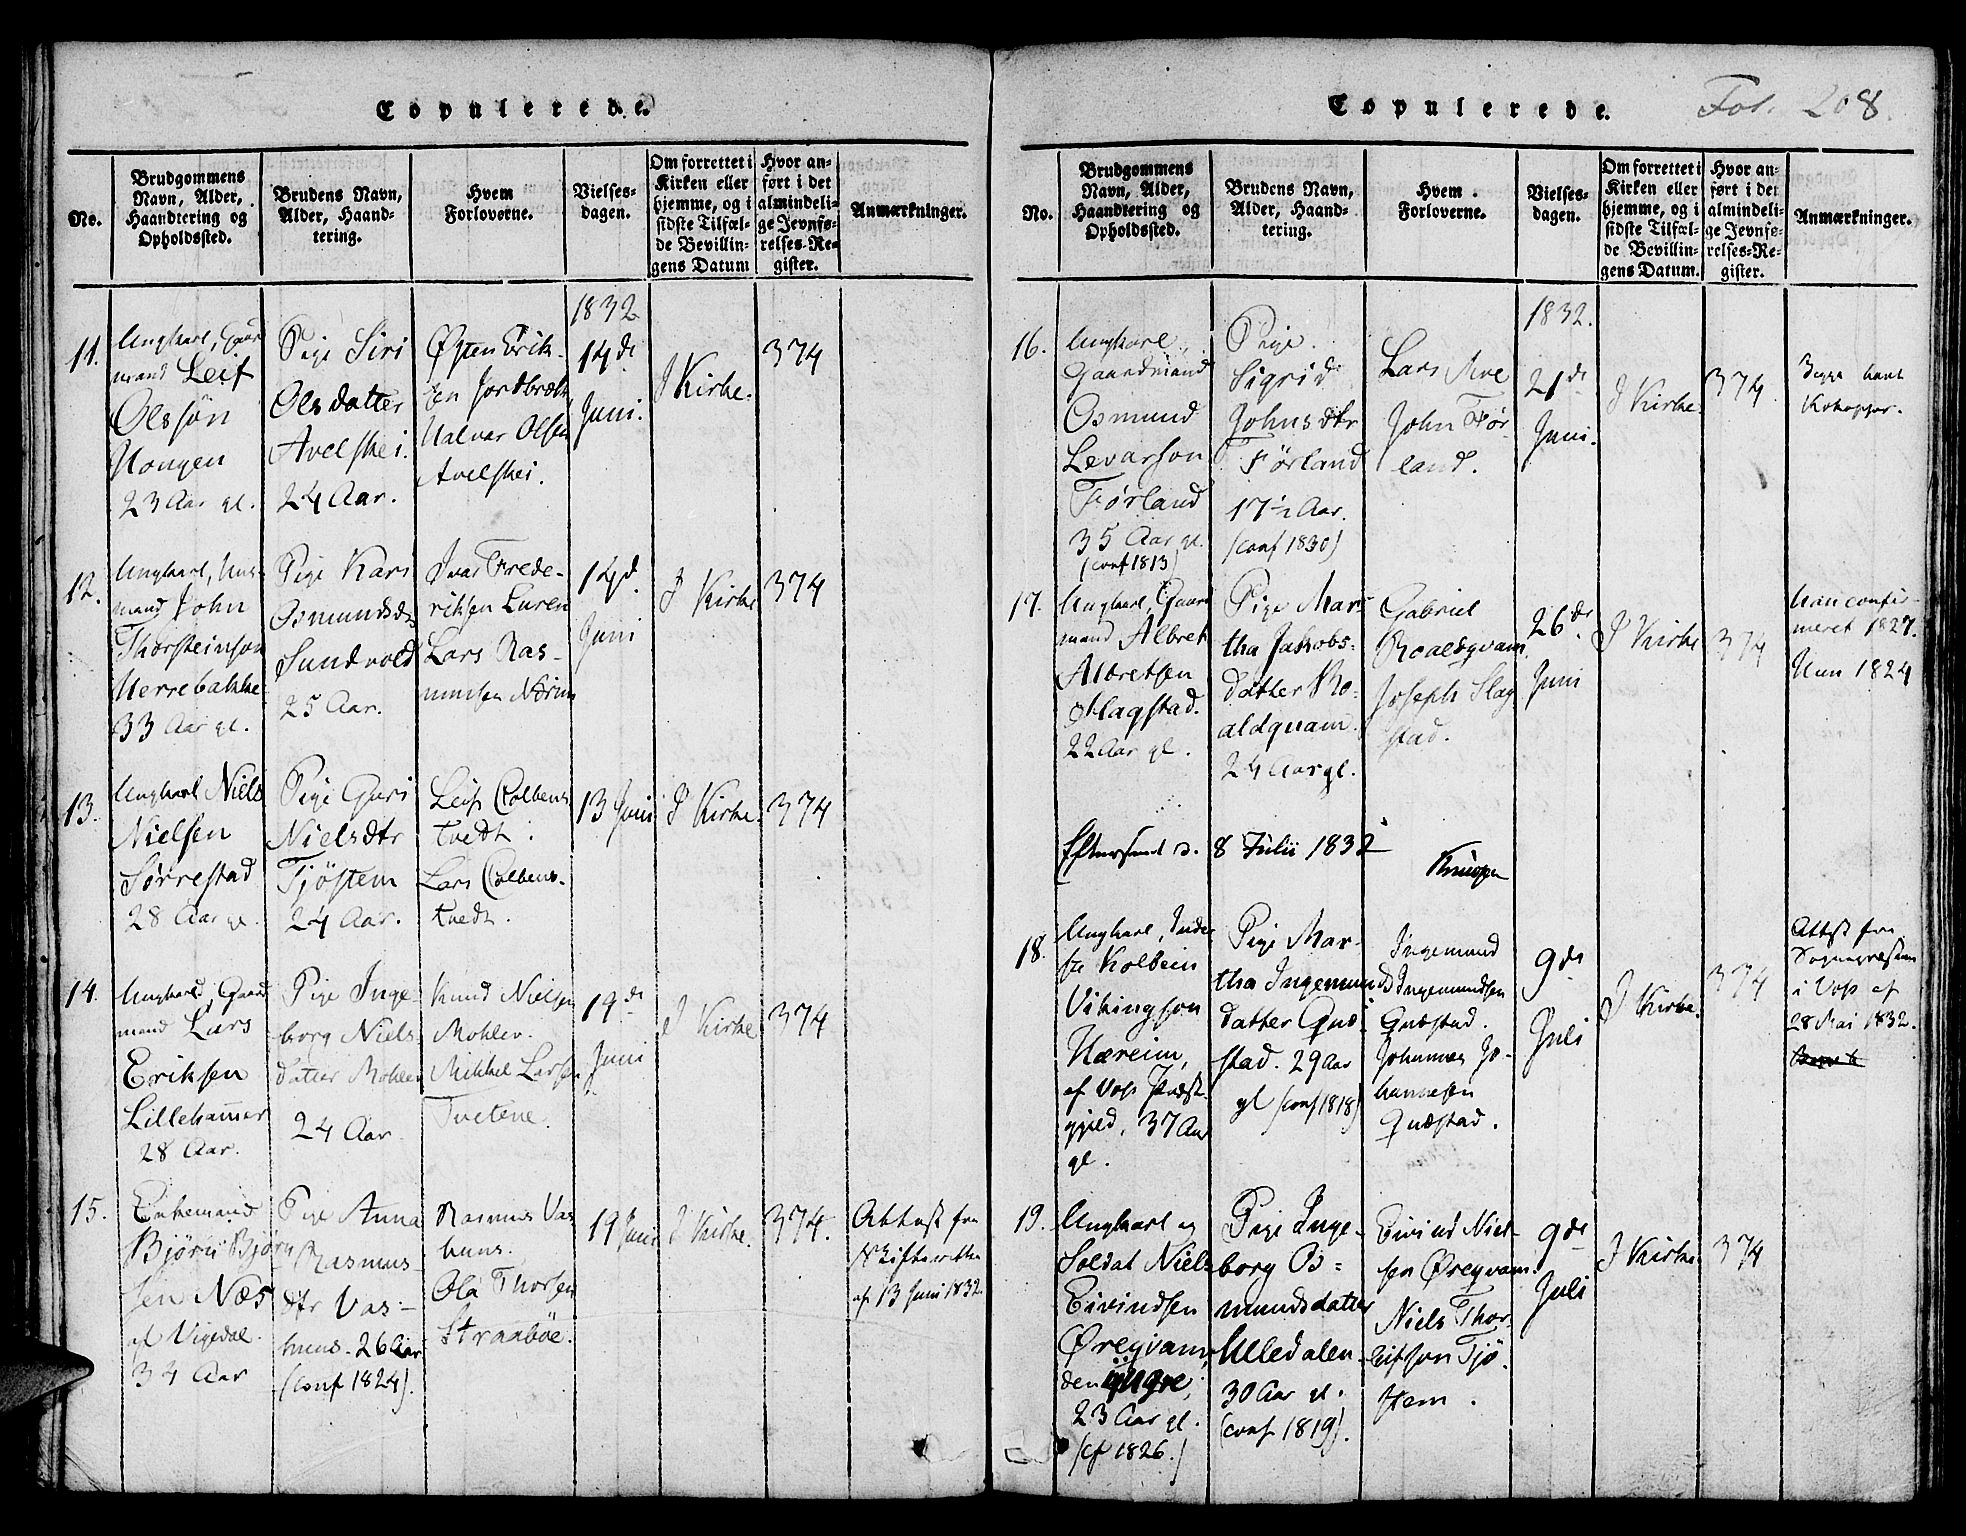 Copulerede.
No.
Brudgommens
Navn, Alder,
Haandtering og
Opholdssted.
Brudens Navn,
Alder, Haand-
tering.
Hvem
Forloverne.
Vielses-
dagen.
Om forrettet i
Kirken eller
hjemme, og i
sidste Tilfæl-
de Bevillin-
gens Datum
Hvor an-
ført i det
almindeli-
ge Jevnfø-
relses-Re-
gister.
Anmærkninger.
1832
11.
Ungkarl, Gaar
mand Leif
Olssøn
Hongen
23 Aar gl.
Pige Siri
Olsdatter
Avelskei.
24 Aar.
Østen Erik-
sen Jordbræk
Halvar Olsen
Avelskei.
14de
Juni.
I Kirke.
374
12.
Ungkarl, Huus-
mand John
Thorsteinson
Herrebakke
33 Aar gl.
Pige Kari
Osmundsdtr
Sundvold
25 Aar.
Ivar Frede-
riksen Luren
Lars Ras-
mussen Nærum
14d.
Juni
I Kirke
374
13.
Ungkarl Niels
Nielsen
Sørrestad
28 Aar gl.
Pige Guri
Nielsdtr
Tjøstem
24 Aar.
Leif Colbens
tvedt.
Lars Colbens-
tvedt.
13 Juni
I Kirke.
374
14.
Ungkarl, Gaard
mand Lars
Eriksen
Lillehamer
28 Aar.
Pige Inge-
borg Niels
datter Mohlev
24 Aar.
Knud Nielsen
Mohlev.
Mikkel Larsen
Tvetene.
19de
Juni
I Kirke
374
15.
Enkemand
Bjørn Bjørn
sen Næs
af Vigedal.
34 Aar
Pige Anna
Rasmus-
dtr Vas-
huus. 26 Aar
(Conf 1824).
Rasmus Vas
huus.
Ola Thorsen
Straabøe.
19 Juni
I Kirke.
374.
Attest fra
Skifteretten
af 13 Juni 1832.
Copulerede.
Fol. 208.
No.
Brudgommens
Navn, Alder,
Haandtering og
Opholdssted.
Brudens Navn,
Alder, Haand-
tering.
Hvem
Forloverne.
Vielses-
dagen.
Om forrettet i
Kirken eller
hjemme, og i
sidste Tilfæl-
de Bevillin-
gens Datum.
Hvor an-
ført i det
almindeli-
ge Jevnfø-
relses-Re-
gister.
Anmærkninger.
1832.
16.
Ungkarl,
Gaardmand
Osmund
Levarson
Førland
35 Aar gl.
(Conf 1813)
Pige.
Sigrid
Johnsdtr
Førland
17 1/2 Aar.
(Conf 1830)
Lars Moe
John Før-
land.
21de
Juni.
I Kirke.
374.
Begge havt
Kokopper.
17.
Ungkarl, Gaard
mand, Albret
Albretsen
Slagstad.
22 Aar gl.
Pige Mar-
tha Jakobs-
datter Ro-
aldqvam.
24 Aar gl.
Gabriel
Roaldqvam
Joseph Slag
stad.
26de
Juni
I Kirke
374
Han confir-
meret 1827.
Hun 1824
Efterseet d. 8 Julii 1832
18.
Ungkarl, Inder
ste Kolbein
Vikingson
Hæreim,
af Voss Præst
gjeld, 37 Aar
gl.
Pige Mar-
tha Ingemunds
datter Qvæ-
stad. 29 Aar
gl (Conf 1818)
Ingemund
Ingemundsen
Qvæstad.
Johannes Jo-
hannesen
Qvæstad.
9de
Juli
I Kirke.
374
Attest fra
Sognepræsten
i Voss af
28 Mai 1832.
19.
Ungkarl og
Soldat Niels
Eivindsen
Øregvam,
den yngre,
23 Aar gl.
(cf 1826.)
Pige Inge-
borg Os-
mundsdatter
Ulledalen-
30 Aar gl.
(conf 1819).
Eivind Niel-
sen Øregvam.
Niels Thor-
leifson Tjø-
stem.
9de
Juli
I Kirke.
374